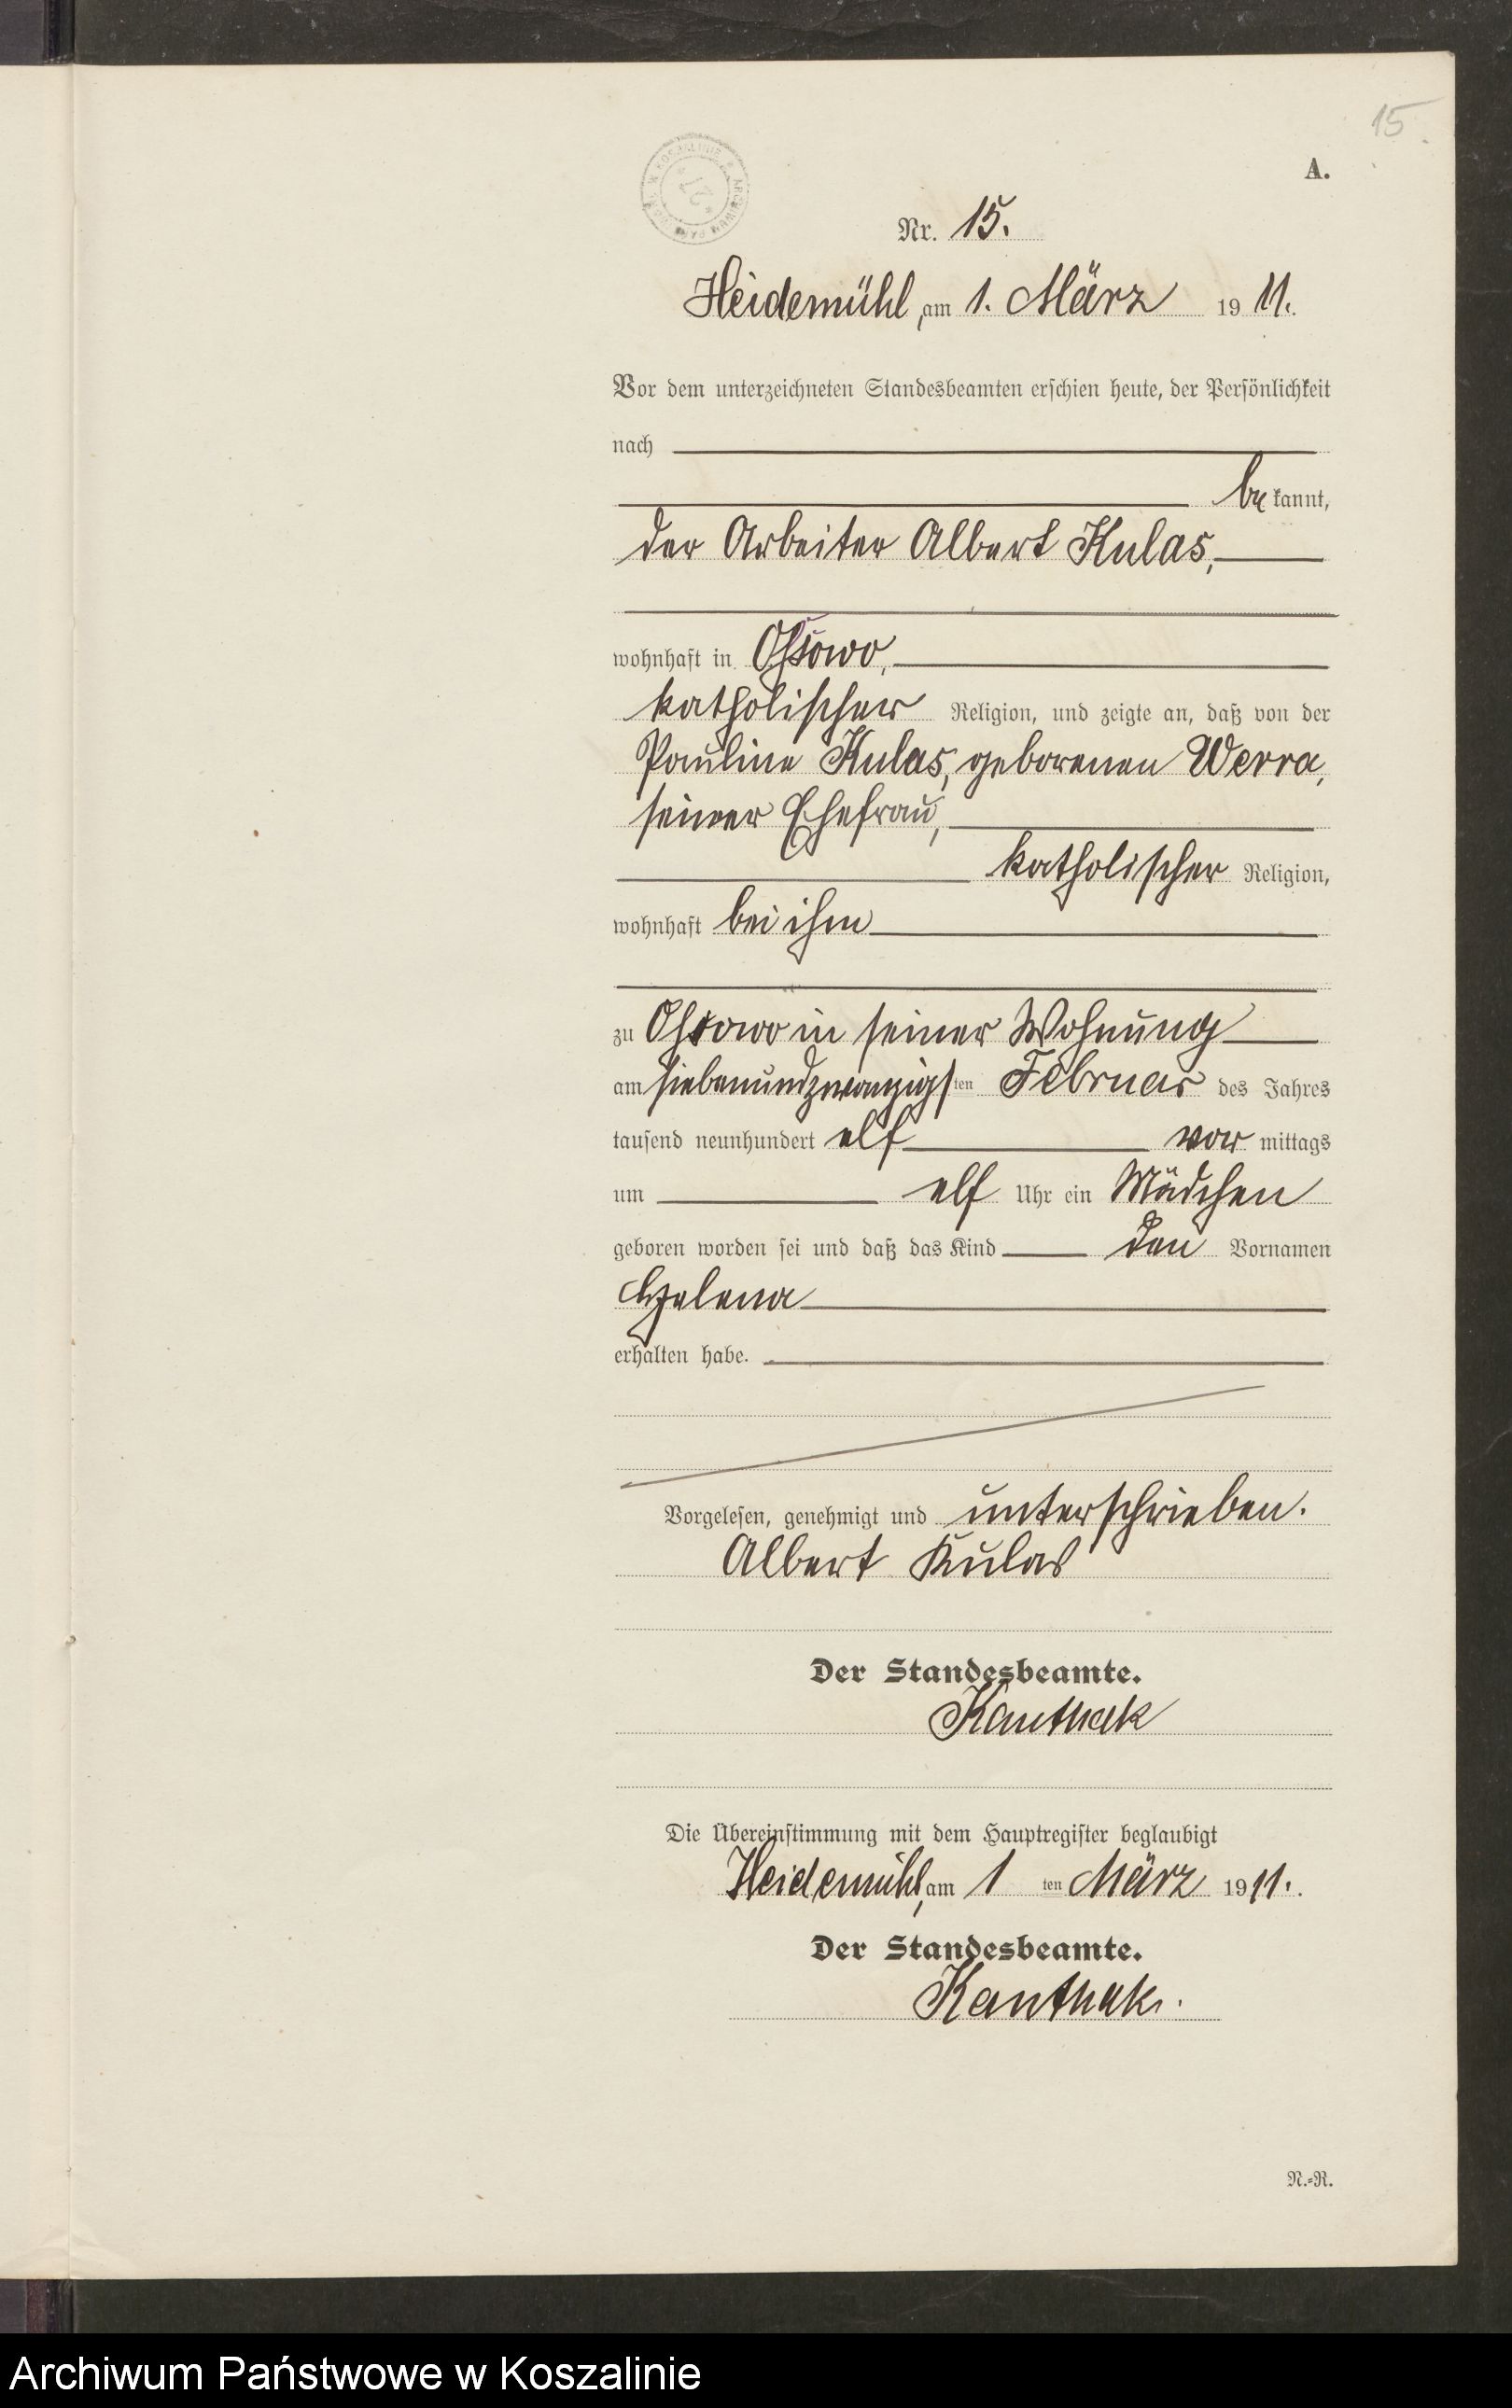 15
A.
Nr. 15.
Heidemühl, am 1. März 1911.
Vor dem unterzeichneten Standesbeamten erschien heute, der Persönlichkeit
nach
bekannt,
der Arbeiter Albert Kulas,
wohnhaft in Ossowo,
katholischer Religion, und zeigte an, daß von der
Pauline Kulas, geborenen Werra,
seiner Ehefrau,
katholischer Religion,
wohnhaft bei ihm
zu Ossowo in seiner Wohnung
am siebenundzwanzigsten Februar des Jahres
tausend neunhundert elf vor mittags
um elf Uhr ein Mädchen
geboren worden sei und daß das Kind den Vornamen
Helena
erhalten habe.
Vorgelesen, genehmigt und unterschrieben.
Albert Kulas
Der Standesbeamte.
Kanthak
Die Übereinstimmung mit dem Hauptregister beglaubigt
Heidemühl, am 1 ten März 1911.
Der Standesbeamte.
Kanthak.
N.-R.
Archiwum Państwowe w Koszalinie